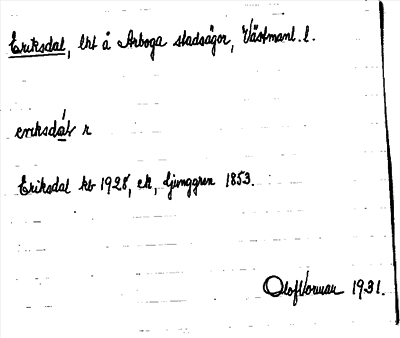 Eriksdal, lht å Arboga stadsägor, Västmanl. l.
eriksdál r
Eriksdal kb 1928, ek, Ljunggren 1853.
Olof Norman 1931.